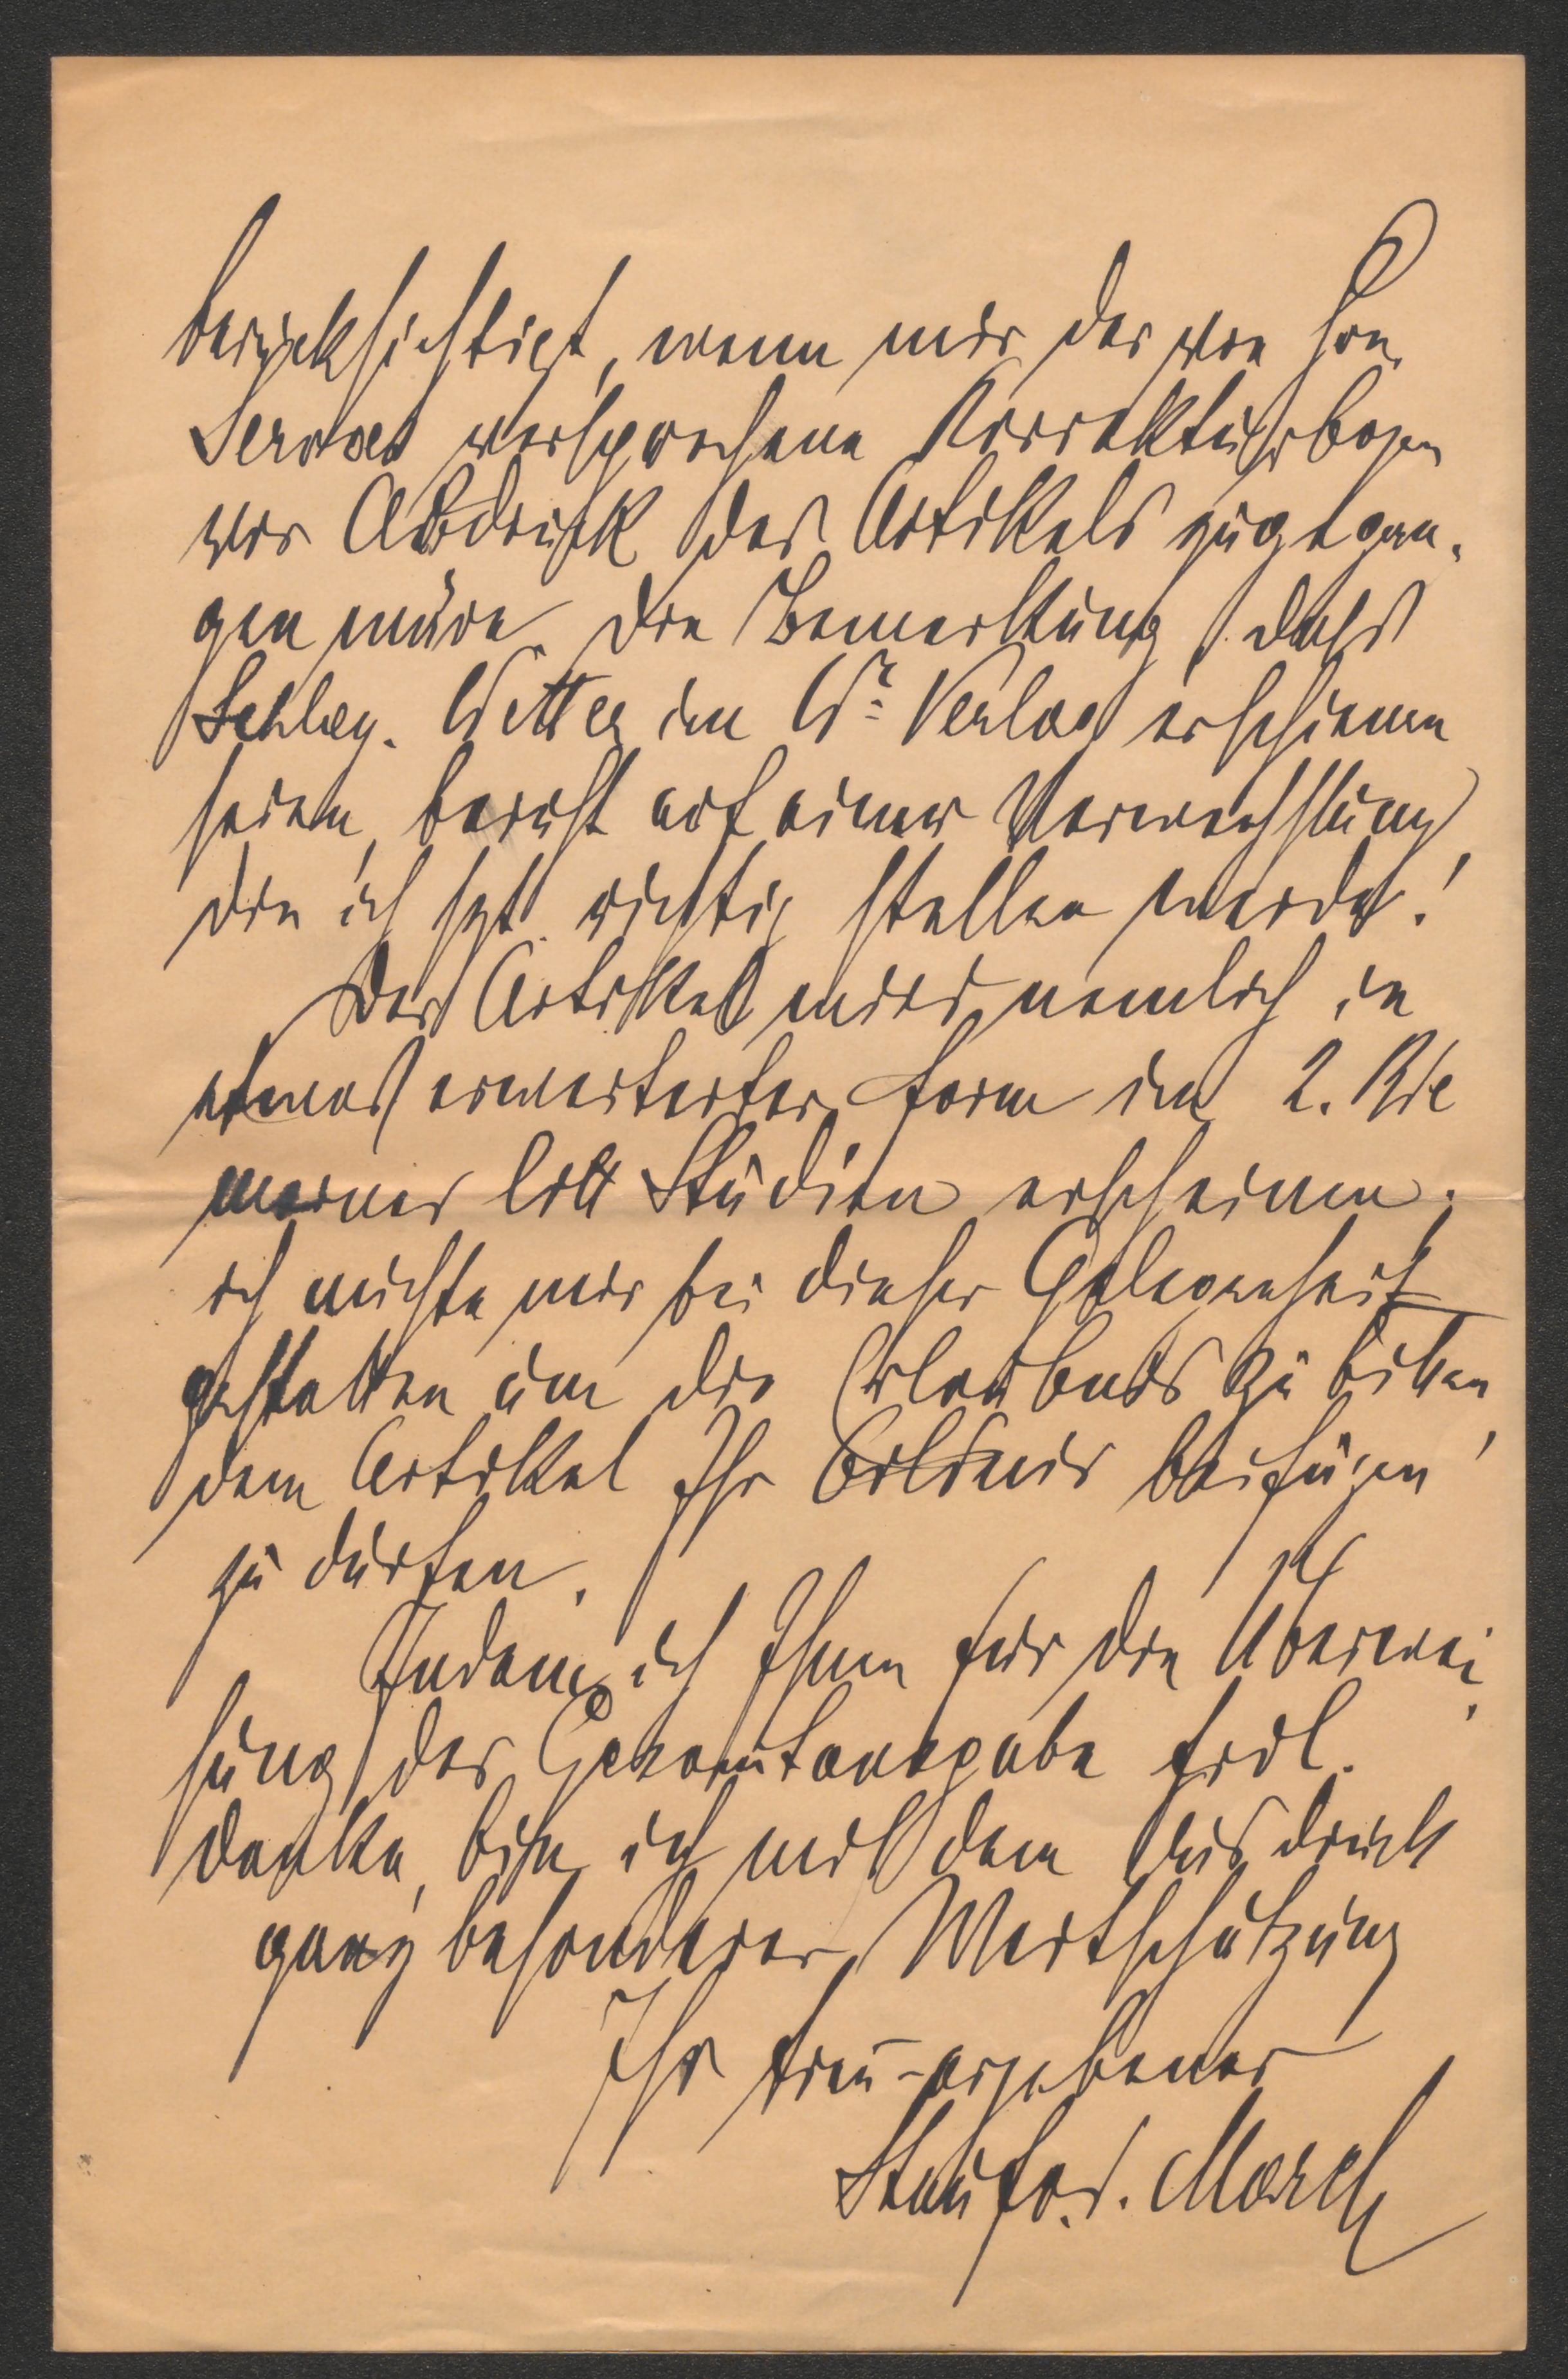 berücksichtigt, wenn mir der von Hrn.
Servaes versprochene Korrekturbogen
vor Abdruck des Artikels zugegan-
gen wäre. Die Bemerkung, dass
Schlag. Wetter im Wr. Verlag erschienen
seien, beruht auf einer Verwechslung,
die ich spt. richtig stellen werde!
Der Artikel wird nemlich in
etwas erweiterter Form im 2. Bde
meiner litt Studien erscheinen.
ich möchte mir bei dieser Gelegenheit
gestatten um die Erlaubnis zu bitten,
dem Artikel Ihr Bildnis beifügen
zu dürfen.
Indem ich Ihnen für die Überwei-
sung der Gesamtausgabe frdl.
danke, bin ich mit dem Ausdruck
ganz besonderer Wertschätzung
Ihr treu-ergebener
Stauf v. d. March